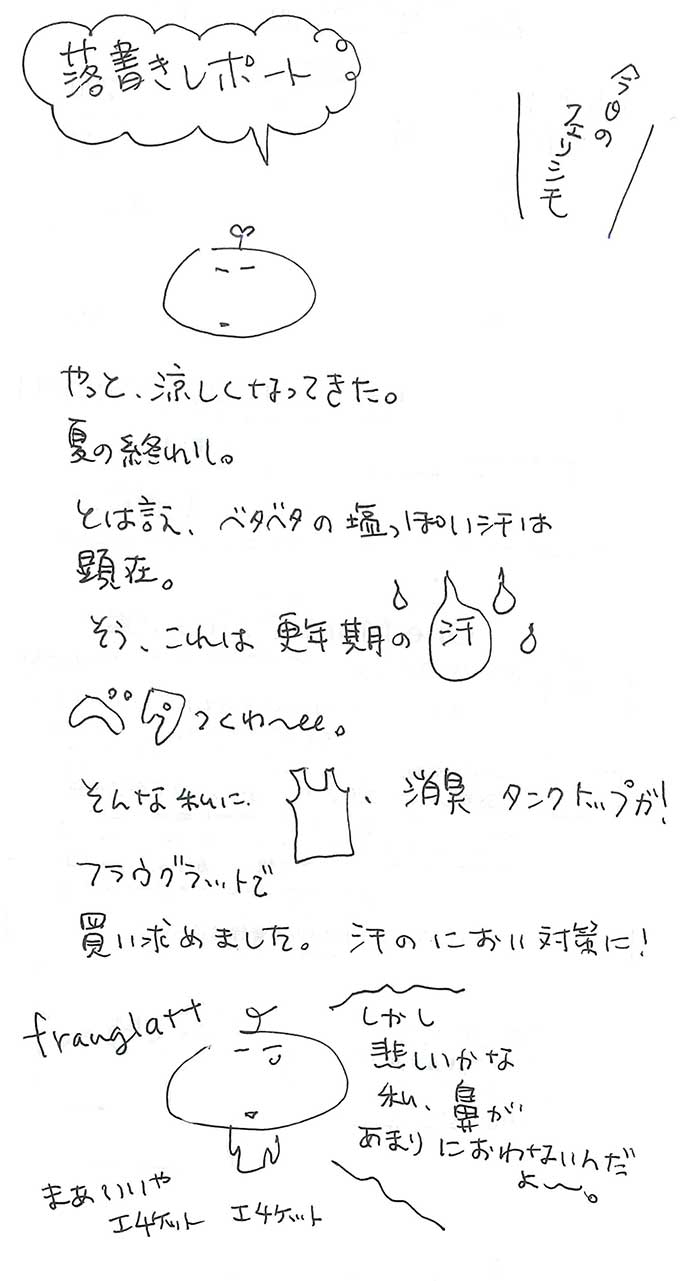 落書きレポート
今日の
フェリシモ
やっと、涼しくなってきた。
夏の終わり。
とは言え、ベタベタの塩っぽい汗は
顕在。
そう、これは 更年期の 汗
ベタつくわ〜ee。
そんな私に 、消臭 タンクトップが!
フラウグラットで
買い求めました。 汗の におい 対策に!
frauglatt
しかし
悲しいかな
私、鼻が
あまり におわないんだ
よ〜。
まあいいや
エチケット エチケット